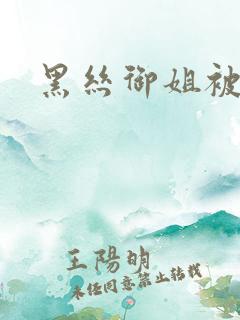 黑丝御姐被
王陽明
未经同意禁止转载